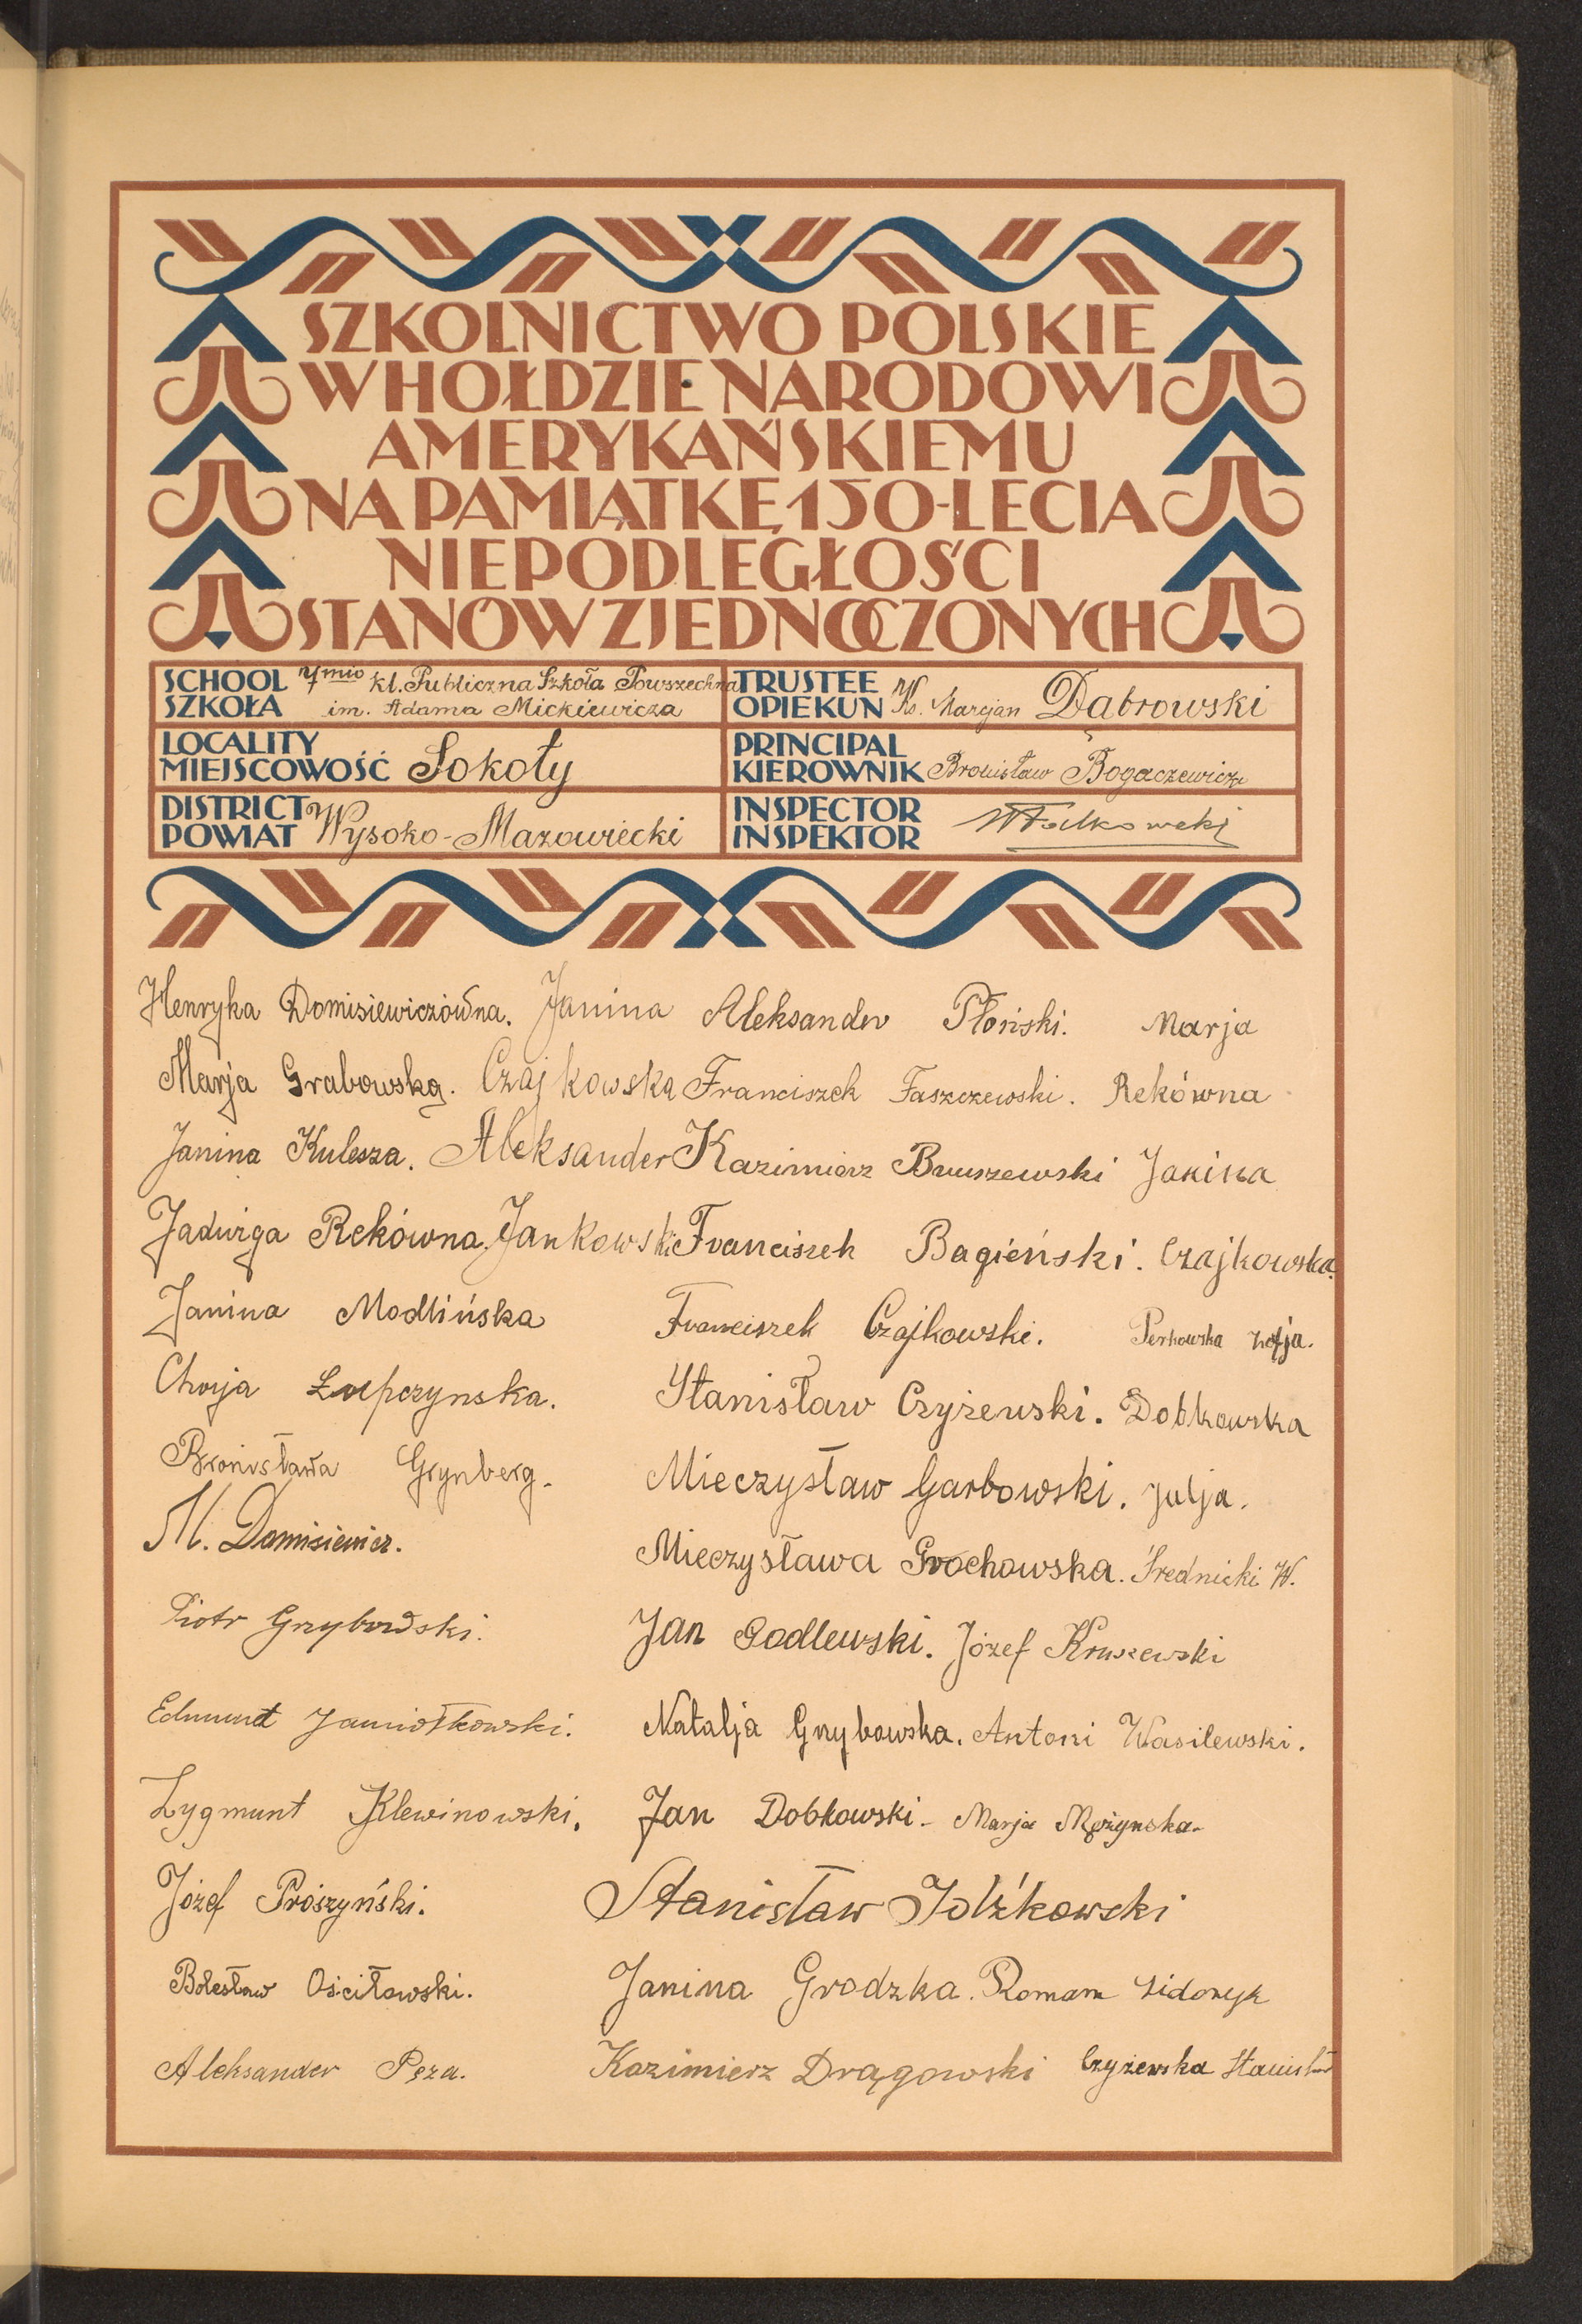 SZKOLNICTWO POLSKIE
W HOŁDZIE NARODOWI
AMERYKAŃSKIEMU
NA PAMIĄTKĘ 150-LECIA
NIEPODLEGŁOŚCI
STANÓW ZJEDNOCZONYCH
SCHOOL
SZKOŁA
7mio kl. Publiczna Szkoła Powszechna
im. Adama Mickiewicza
TRUSTEE
OPIEKUN
Ks. Marcjan Dąbrowski
LOCALITY
MIEJSCOWOŚĆ
Sokoły
PRINCIPAL
KIEROWNIK
Bronisław Bogaczewicz
DISTRICT
POWIAT
Wysoko-Mazowiecki
INSPECTOR
INSPEKTOR
Henryka Domisiewiczówna. Janina Aleksander Płoński. Marja
Marja Grabowska. Czajkowska Franciszek Faszczewski. Rekówna
Janina Kulesza. Aleksander Kazimierz Bruszewski Janina
Jadwiga Rekówna. Jankowski Franciszek Bagieński. Czajkowska.
Janina Modlińska Franciszek Czajkowski. Perkowska Zofja.
Choja Łupczynska. Stanisław Czyżewski. Dobkowska
Bronisława Grynberg. Mieczysław Garbowski. Julja.
M. Domisiewicz. Mieczysława Grochowska. Średnicki W.
Piotr Grzybowski. Jan Godlewski. Józef Kruszewski
Edmund Jamiołkowski. Natalja Grzybowska. Antoni Wasilewski.
Zygmunt Klewinowski. Jan Dobkowski. Marja Mężynska.
Józef Prószyński. Stanisław Idźkowski
Bolesław Ościłowski. Janina Grodzka. Roman
Aleksander Pęza. Kazimierz Drągowski Czyżewska Stanisł